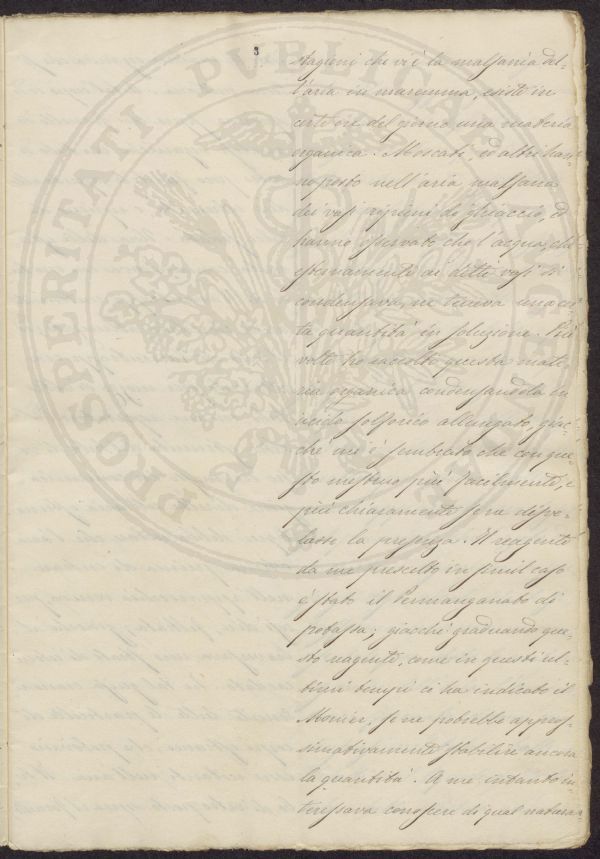 3
stagioni che vi è la malsania del-
l'aria in maremma, esiste in
certe ore del giorno una materia
organica. Moscati, ed altri han-
no posto nell'aria malsana
dei vasi ripieni di ghiaccio, ed
hanno osservato che l'acqua, che
esternamente ai detti vasi si
condensava, ne teneva una cer-
ta quantità in soluzione. Più
volte ho raccolto questa mate-
ria organica condensandola in
acido solforico allungato, giac-
chè mi è sembrato che con que-
sto mestruo più facilmente, e
più chiaramente se ne disve-
lasse la presenza. Il reagente
da me prescelto in simil caso
è stato il Permanganato di
potassa; giacchè graduando que-
sto reagente, come in questi ul-
timi tempi ci ha indicato il
Monier, se ne potrebbe appros-
simativamente stabilire ancora
la quantità. A me intanto in-
teressava conoscere di qual natura
PROSPERITATI PUBLICAE AUGENDAE